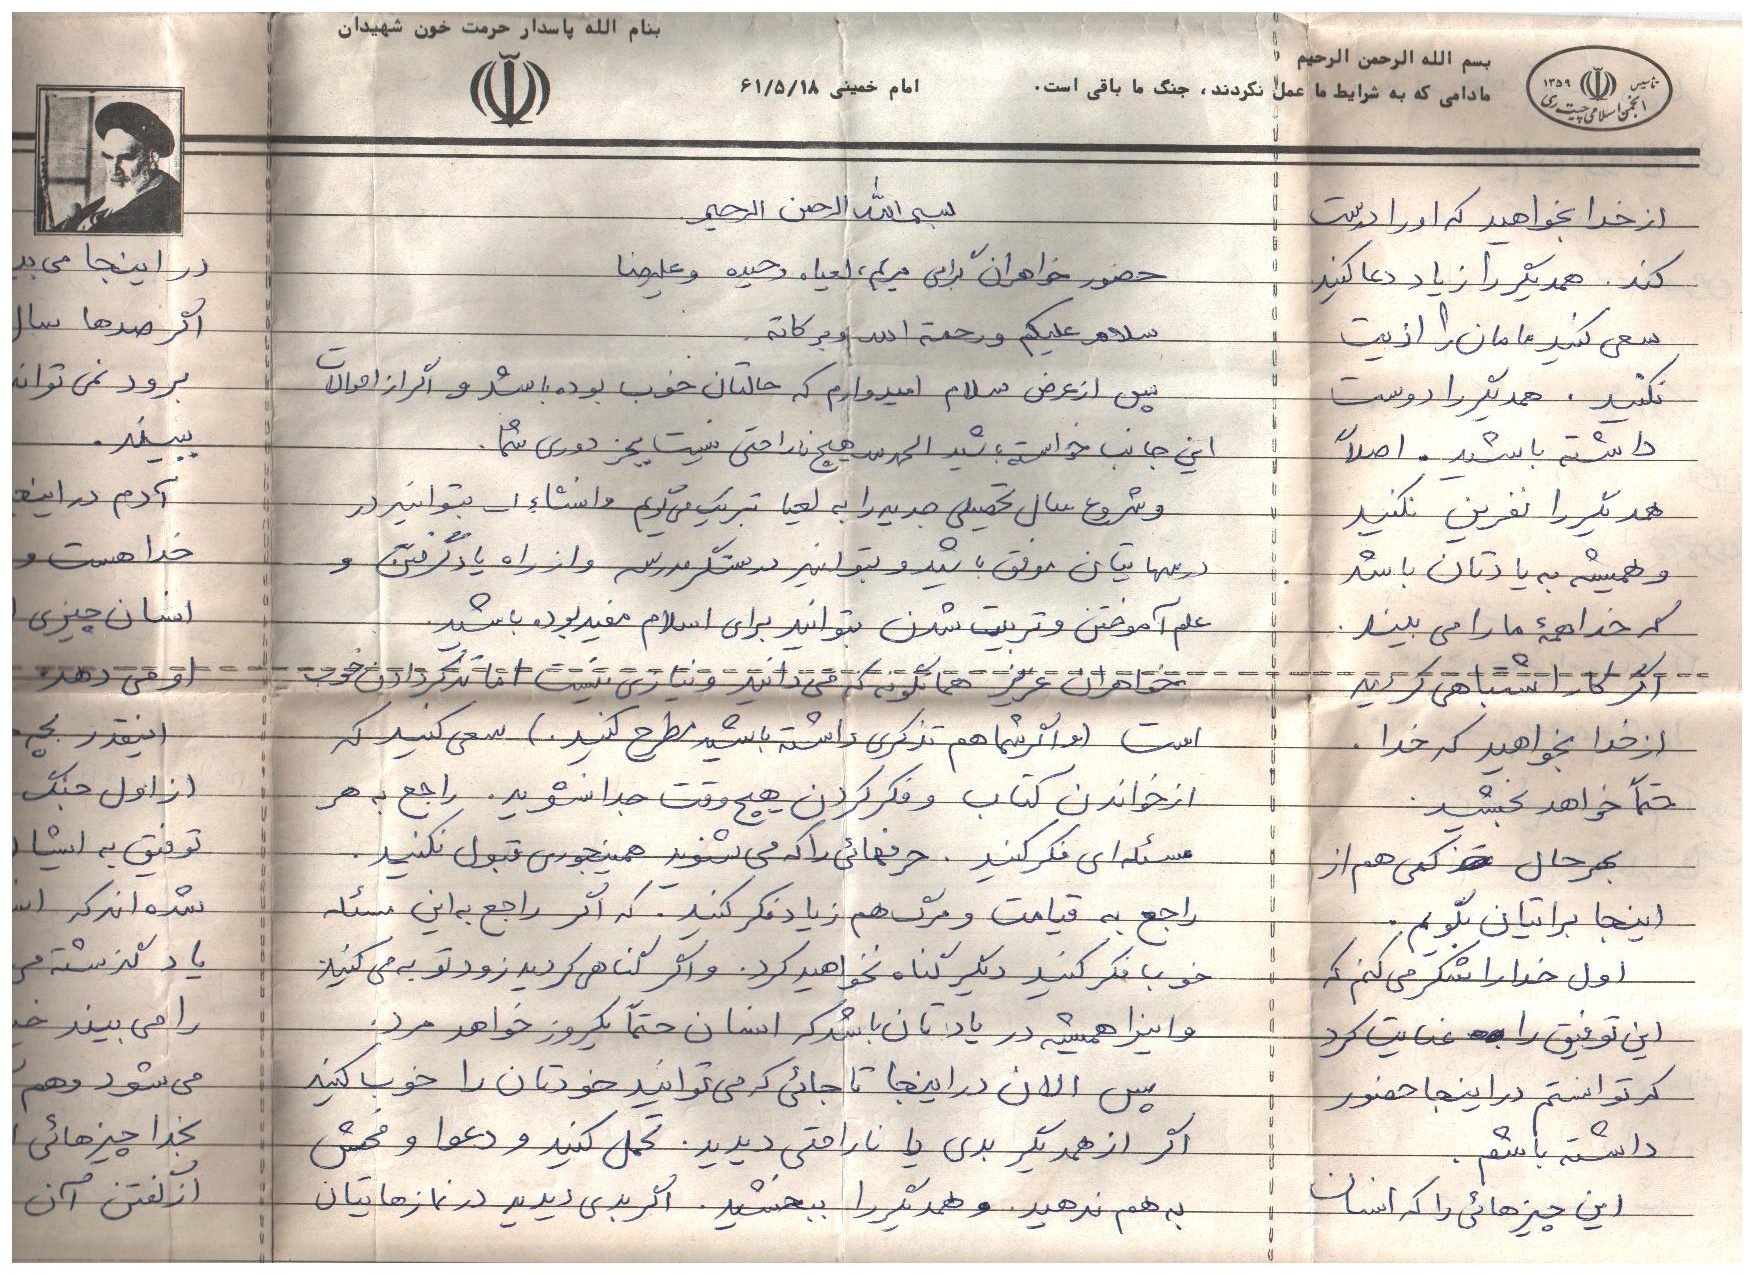 بنام الله پاسدار حرمت خون شهیدان
بسم الله الرحمن الرحیم
مادامی که به شرایط ما عمل نکردند، جنگ ما باقی است.
امام خمینی ۶۱/۵/۱۸
تأسیس ۱۳۵۹
انجمن اسلامی چیت ری
بسم الله الرحمن الرحیم
حضور خواهران گرامی مریم، لعیا، وحیده و علیرضا
سلام علیکم و رحمة الله و برکاته.
پس از عرض سلام امیدوارم که حالتان خوب بوده باشد و اگر از احوالات
این جانب خواسته باشید الحمدلله هیچ ناراحتی نیست بجز دوری شما.
و شروع سال تحصیلی جدید را به لعیا تبریک می‌گویم و انشاءا... بتوانید در
درسهایتان موفق باشید و بتوانید در سنگر مدرسه و از راه یادگرفتن و
علم آموختن و تربیت شدن بتوانید برای اسلام مفید بوده باشید.
خواهران عزیز همانگونه که می‌دانید و نیازی نیست اما تذکر دادن خوب
است (و اگر شما هم تذکری داشته باشید مطرح کنید.) سعی کنید که
از خواندن کتاب و فکر کردن هیچ وقت جدا نشوید. راجع به هر
مسئله‌ای فکر کنید. حرفهائی را که می‌شنوید همینجوری قبول نکنید.
راجع به قیامت و مرگ هم زیاد فکر کنید. که اگر راجع به این مسئله
خوب فکر کنید دیگر گناه نخواهید کرد. و اگر گناهی کردید زود توبه می‌کنید
و اینرا همیشه در یادتان باشد که انسان حتماً یکروز خواهد مرد.
پس الان در اینجا تا جائی که می‌توانید خودتان را خوب کنید
اگر از همدیگر بدی یا ناراحتی دیدید. تحمل کنید و دعوا و فحش
به هم ندهید. و همدیگر را ببخشید. اگر بدی دیدید در نمازهایتان
از خدا بخواهید که او را درست
کند. همدیگر را زیاد دعا کنید
سعی کنید مامان را اذیت
نکنید. همدیگر را دوست
داشته باشید. اصلاً
همدیگر را نفرین نکنید
و همیشه به یادتان باشد
که خدا همهٔ ما را می‌بیند.
اگر کار اشتباهی کردید
از خدا بخواهید که خدا.
حتماً خواهد بخشید.
بهرحال کمی هم از
اینجا برایتان بگویم.
اول خدا را شکر می‌کنم که
این توفیق را عنایت کرد
که توانستم در اینجا حضور
داشته باشم.
این چیزهائی را که انسان
در اینجا می‌بی
اگر صدها سال
برود نمی‌تواند
ببیند.
آدم در اینج
خدا هست و
انسان چیزی
او می‌دهد
اینقدر بچه
از اول جنگ
توفیق به ایشان
شده‌اند که
یاد گذشته
را می‌بیند
می‌شود و هم
بخدا چیزهائی
از گفتن آن